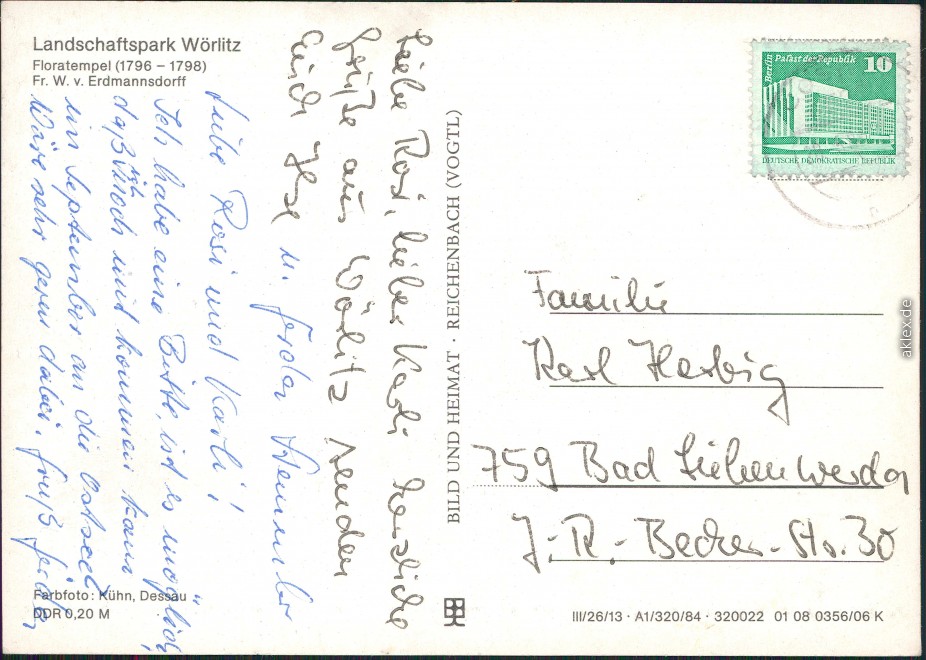 Landschaftspark Wörlitz
Floratempel (1796 – 1798)
Fr. W. v. Erdmannsdorff
Liebe Rosi, lieber Karli herzliche
Grüße aus Wörlitz senden
Euch Ilse u. Frolo
Liebe Rosi und Karli!
Ich habe eine Bitte, ist es möglich,
daß ich noch mit kommen kann
im September an die Ostsee?
Wäre sehr gerne dabei. Gruß
BILD UND HEIMAT · REICHENBACH (VOGTL)
Berlin Palast der Republik 10
DEUTSCHE DEMOKRATISCHE REPUBLIK
Familie
Karl Herbig
759 Bad Liebenwerda
J.-R.-Becher-Str. 30
Farbfoto: Kühn, Dessau
DDR 0,20 M
III/26/13 · A1/320/84 · 320022 01 08 0356/06 K
aklex.de